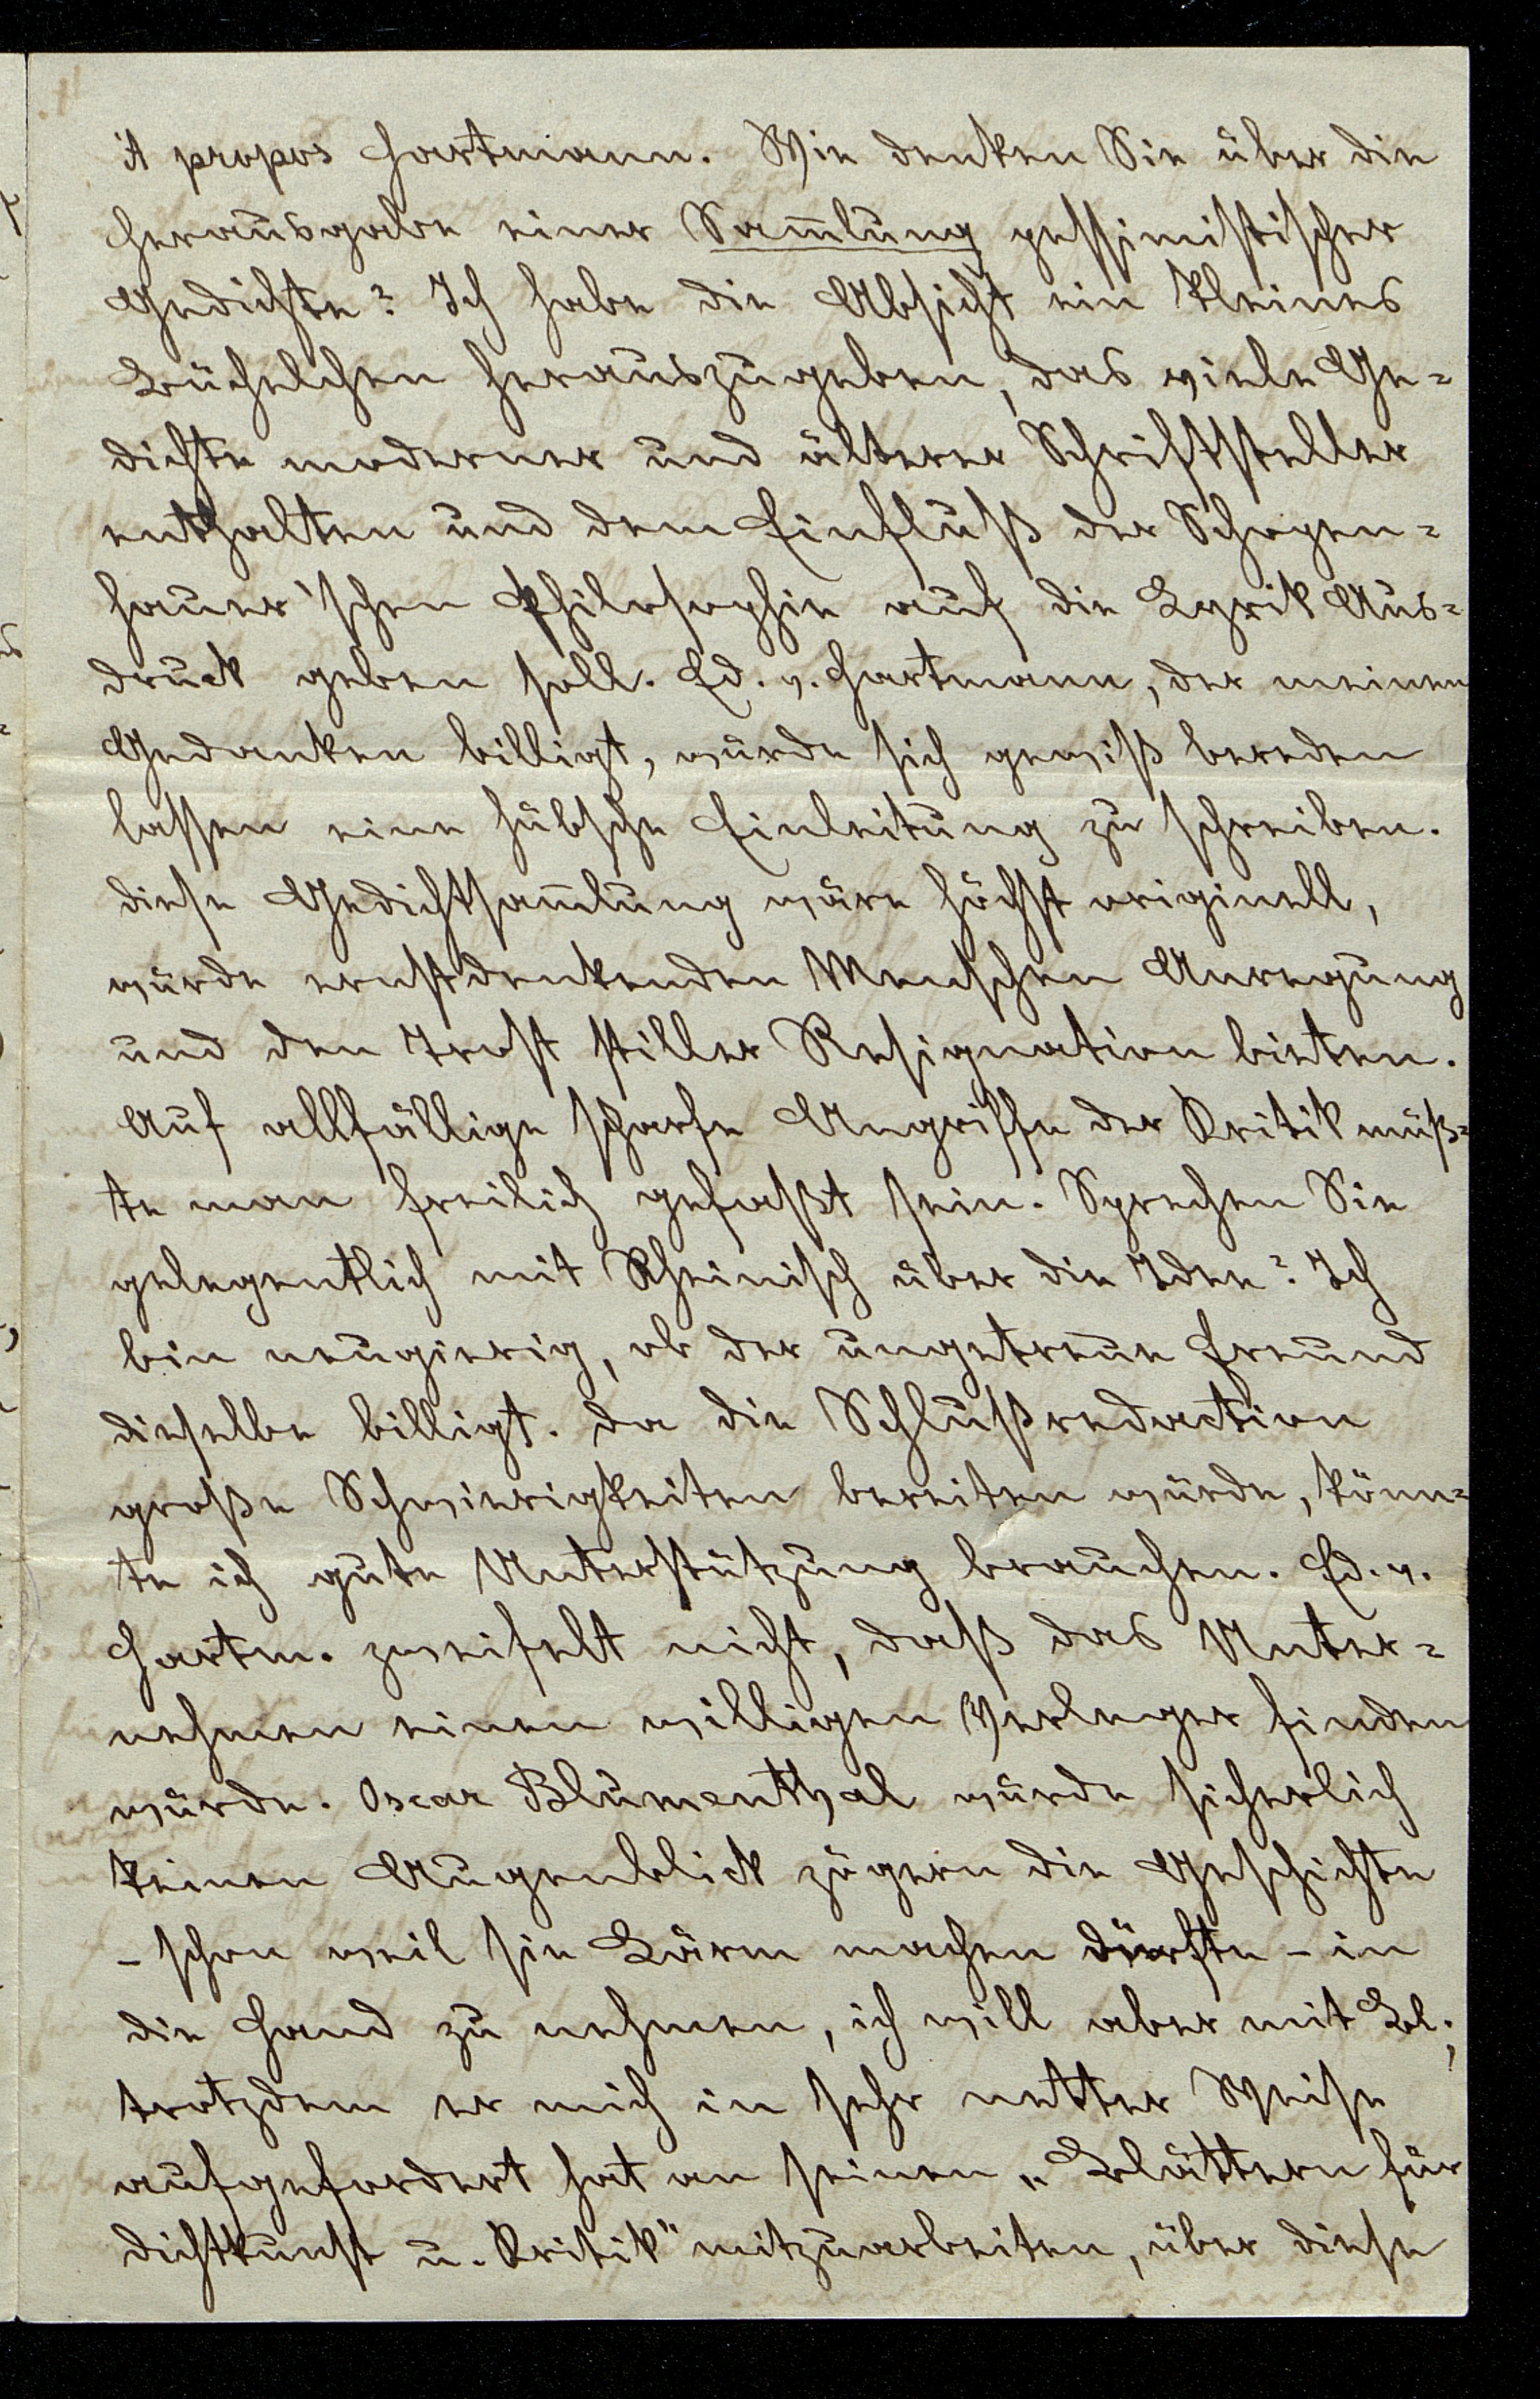 A propos Hartmann. Wie denken Sie über die
Herausgabe einer Sam̄lung pessimistischer
Gedichte? Ich habe die Absicht ein kleines
Büchelchen herauszugeben, das viele Ge=
dichte moderner und älterer Schriftsteller
enthalten und dem Einfluß der Schopen=
hauer'schen Philosophie auf die Lyrik Aus=
druck geben soll. Ed. v. Hartmann, der meinen
Gedanken billigt, würde sich gewiß bereden
lassen eine hübsche Einleitung zu schreiben.
Diese Gedichtsam̄lung wäre höchst originell,
würde ernstdenkenden Menschen Anregung
und den Trost stiller Resignation bieten.
Auf allfällige scharfe Angriffe der Kritik müß=
te man freilich gefaßt sein. Sprechen Sie
gelegentlich mit Rheinisch über die Idee? Ich
bin neugierig, ob der ungetreue Freund
dieselbe billigt. Da die Schlußredaction
große Schwierigkeiten bereiten würde, könn=
te ich gute Unterstützung brauchen. Ed. v.
Hartm. zweifelt nicht, daß das Unter=
nehmen einen willigen Verleger finden
würde. Oscar Blumenthal würde sicherlich
keinen Augenblick zögern die Geschichte
– schon weil sie Lärm machen dürfte – in
die Hand zu nehmen, ich will aber mit Bl.,
trotzdem er mich in sehr netter Weise
aufgefordert hat an seinen „Blättern für
Dichtkunst u. Kritik" mitzuarbeiten, über diese